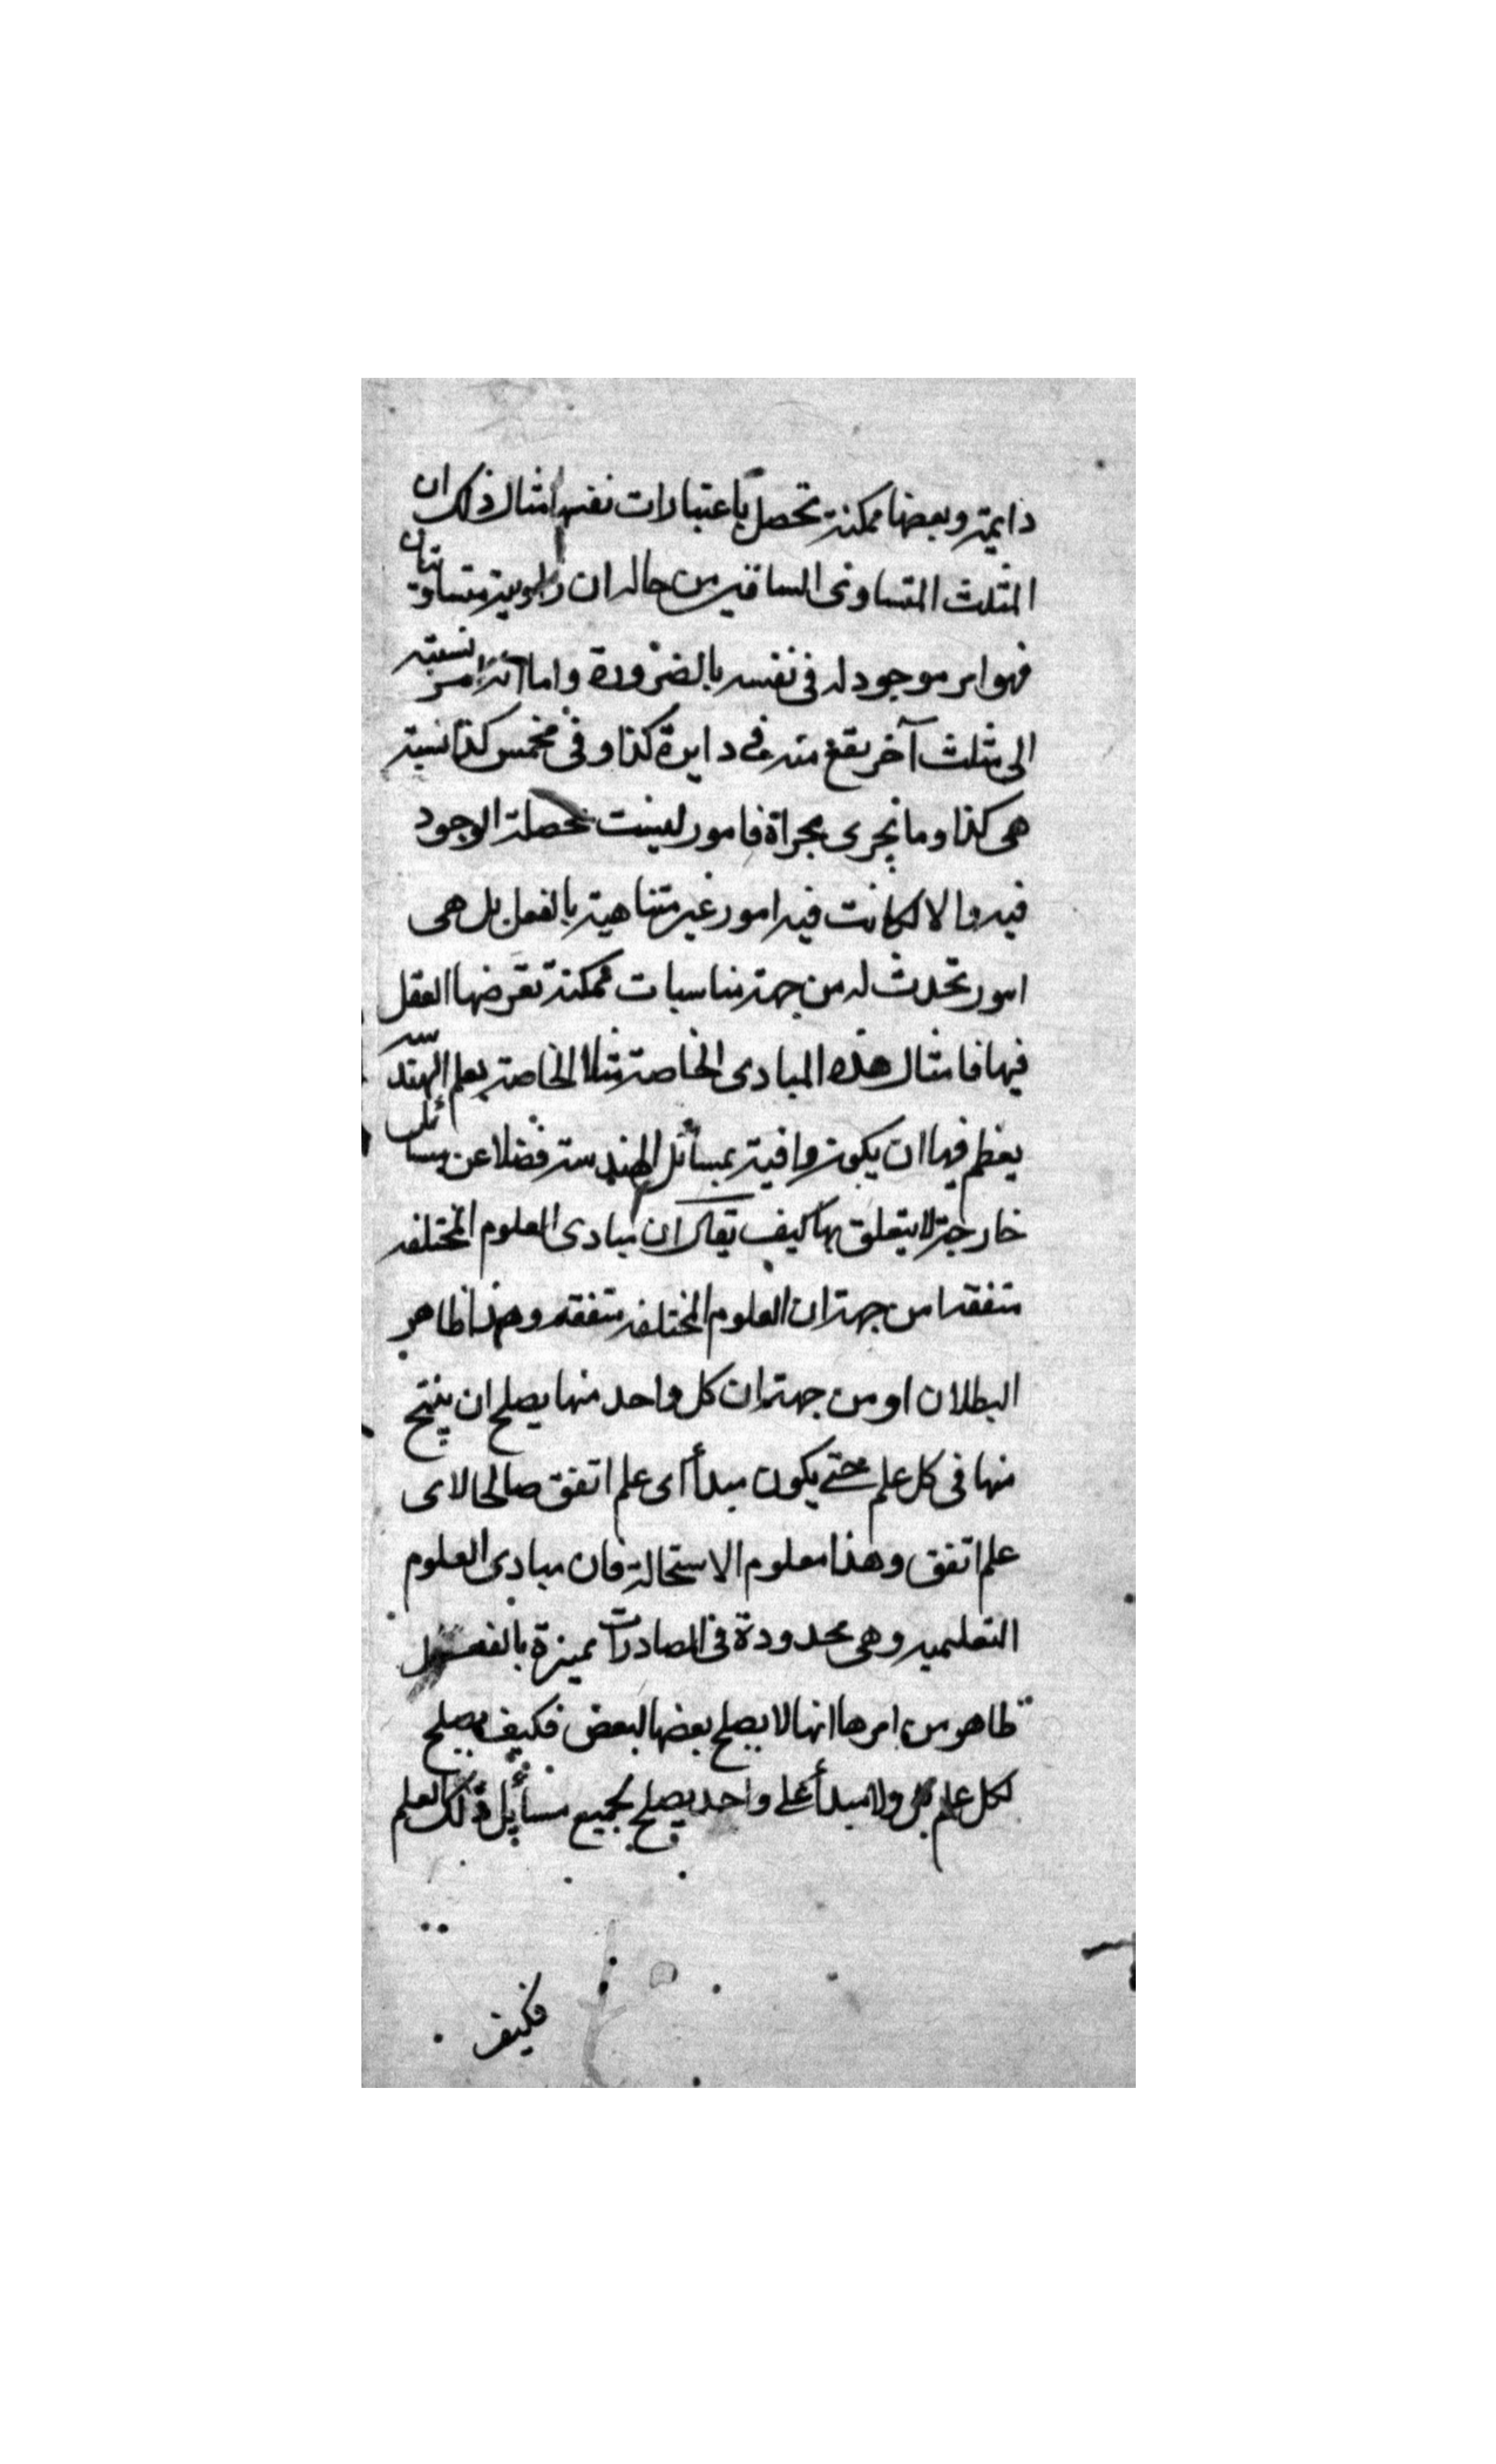 دايمة وبعضها ممكنة تحصل باعتبارات نفسها مثال ذلك ان
المثلث المتساوى الساقين من حاله ان زاويتيه متساويتان
فهو امر موجود له فى نفسه بالضرورة واما انه نسبته
الى مثلث آخر يقع منه فى دايرة كذا وفى مخمس كذا نسبته
هى كذا وما يجرى مجراة فامور ليست محصلة الوجود
فيه والا لكانت فيه امور غير متناهية بالفعل بل هى
امور تحدث له من جهة مناسبات ممكنة تعرضها العقل
فيها فامثال هذه المبادى الخاصة مثلا الخاصة بعلم الهندسة
يعظم فيها ان يكون وافية بمسائل الهندسة فضلا عن مسائل
خارجة لا يتعلق بها كيف يقال ان مبادى العلوم المختلفه
متفقه امن جهة ان العلوم المختلفه متفقه وهذا ظاهر
البطلان او من جهة ان كل واحد منها يصلح ان ينتج
منها فى كل علم حتى يكون مبدأ اى علم اتفق صالحا لاى
علم اتفق وهذا معلوم الاستحالة فان مبادى العلوم
التعليميه وهى محدودة فى المصادرات مميزة بالفعل
ظاهر من امرها انها لا يصلح بعضها لبعض فكيف يصلح
لكل علم بل ولا مبدأ على واحد يصلح لجميع مسائل ذلك العلم
فكيف